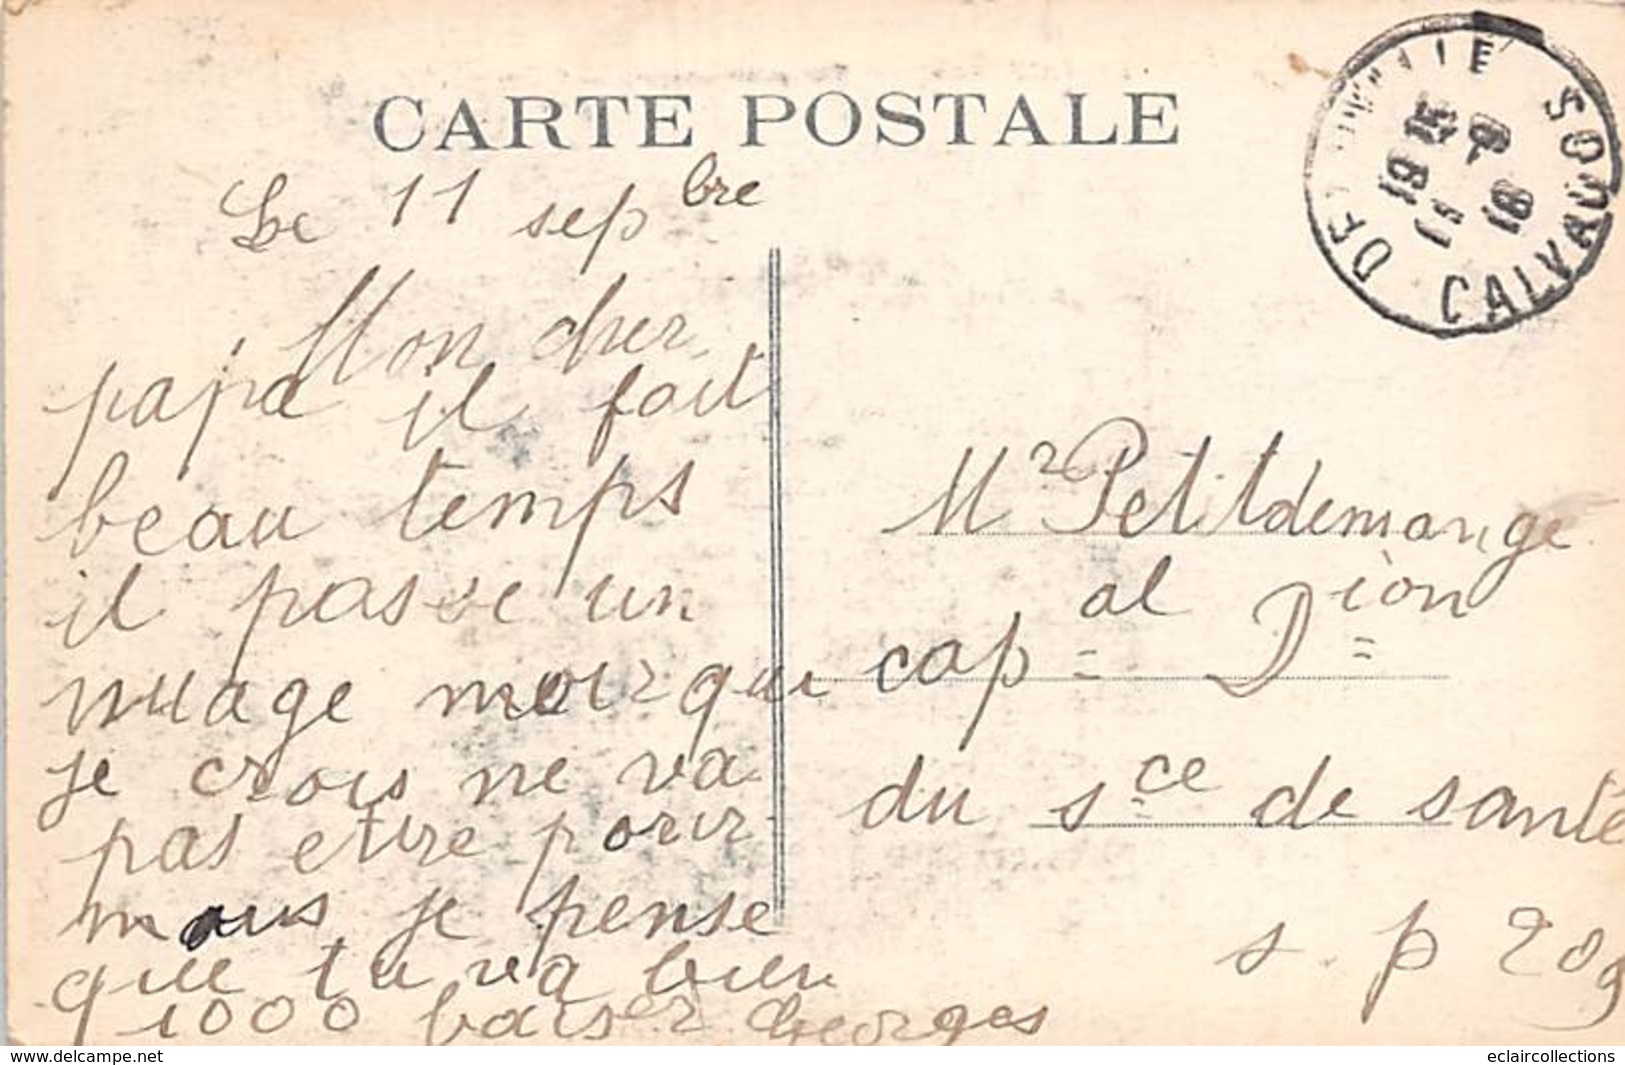 CARTE POSTALE
Le 11 sep bre
Mon cher
papa il fait
beau temps
il passe un
nuage moir qui
je crois ne va
pas etire porir
mais je pense
que tu va bien
1000 baiser Georges
Mr Petitdemange
cap = al Dion =
du sce de santé
s. p 209
CALVADOS
19 15
11 -9
18
www.delcampe.net
eclaircollections